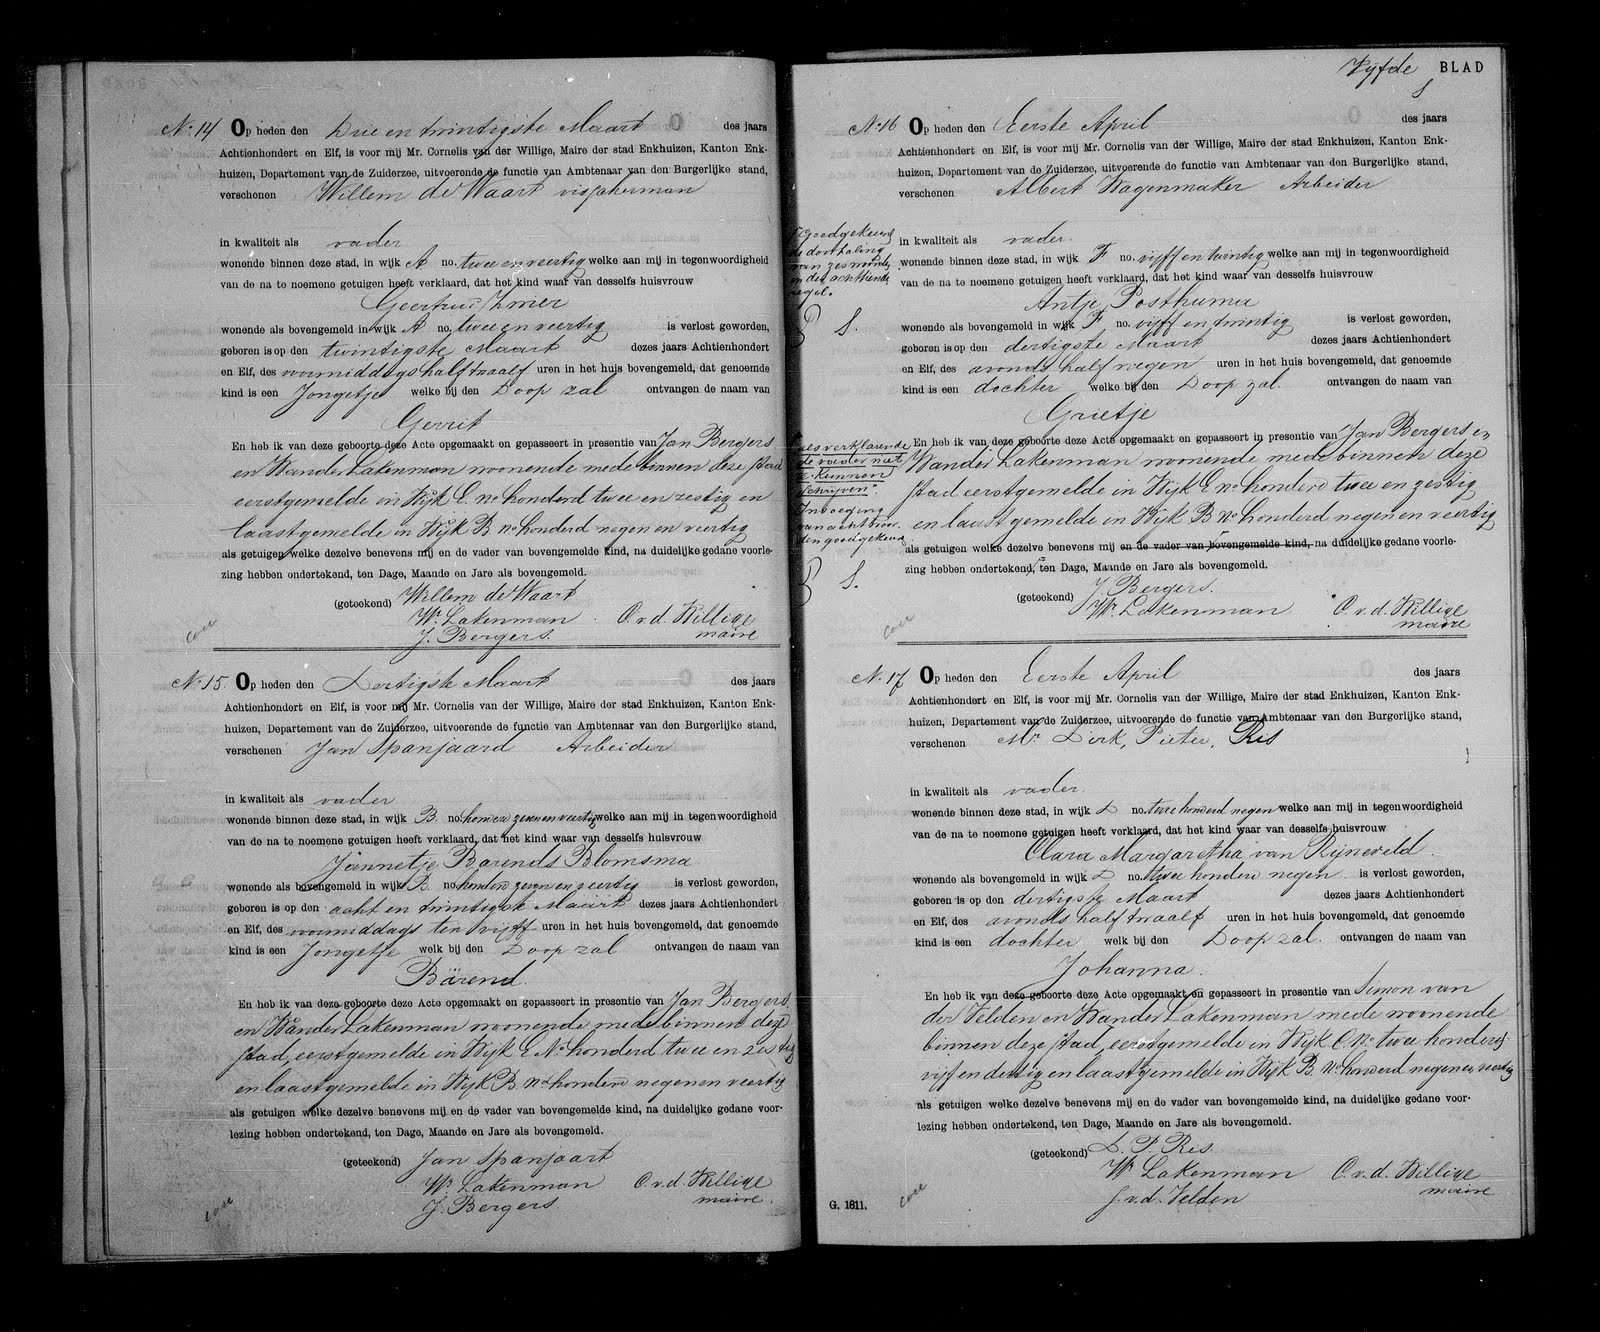 No. 14 Op heden den Drie en twintigste Maart des jaars
Achtienhondert en Elf, is voor mij Mr. Cornelis van der Willige, Maire der stad Enkhuizen, Kanton Enk-
huizen, Departement van de Zuiderzee, uitvoerende de functie van Ambtenaar van den Burgerlijke stand,
verschenen Willem de Waart visscherman
in kwaliteit als vader
wonende binnen deze stad, in wijk A no. twee en veertig welke aan mij in tegenwoordigheid
van de na te noemene getuigen heeft verklaard, dat het kind waar van desselfs huisvrouw
wonende als bovengemeld in wijk A no. twee en veertig is verlost geworden,
geboren is op den twintigste Maart dezes jaars Achtienhondert
en Elf, des voormiddags half twaalf uren in het huis bovengemeld, dat genoemde
kind is een Jongetje welke bij den Doop zal ontvangen de naam van
Gerrit
En heb ik van deze geboorte deze Acte opgemaakt en gepasseert in presentie van Jan Bergers
en Wander Lakenman woonende mede binnen deze stad
eerstgemelde in Wijk E no honderd twee en zestig en
laastgemelde in Wijk B no honderd negen en veertig
als getuigen welke dezelve benevens mij en de vader van bovengemelde kind, na duidelijke gedane voorle-
zing hebben ondertekend, ten Dage, Maande en Jare als bovengemeld.
(geteekend) Willem de Waart
Wr. Lakenman C. v. d. Willige
J. Bergers maire
No. 15 Op heden den Dertigste Maart des jaars
Achtienhondert en Elf, is voor mij Mr. Cornelis van der Willige, Maire der stad Enkhuizen, Kanton Enk-
huizen, Departement van de Zuiderzee, uitvoerende de functie van Ambtenaar van den Burgerlijke stand,
verschenen Jan Spanjaard Arbeider
in kwaliteit als vader
wonende binnen deze stad, in wijk B. no. honderd zeven en veertig welke aan mij in tegenwoordigheid
van de na te noemene getuigen heeft verklaard, dat het kind waar van desselfs huisvrouw
Jannetje Barends Blomsma
wonende als bovengemeld in wijk B. no. honderd zeven en veertig is verlost geworden,
geboren is op den acht en twintigste Maart dezes jaars Achtienhondert
en Elf, des voormiddags ten vijff uren in het huis bovengemeld, dat genoemde
kind is een Jongetje welk bij den Doop zal ontvangen de naam van
Barend.
En heb ik van deze geboorte deze Acte opgemaakt en gepasseert in presentie van Jan Bergers
en Wander Lakenman woonende mede binnen deze
stad, eerstgemelde in Wijk E No honderd twee en zestig
en laastgemelde in Wijk B. no honderd negen en veertig
als getuigen welke dezelve benevens mij en de vader van bovengemelde kind, na duidelijke gedane voor-
lezing hebben ondertekend, ten Dage, Maande en Jare als bovengemeld.
(geteekend) Jan Spanjaart
Wr. Lakenman C. v. d. Willige
J. Bergers maire.
Vijfde BLAD
No 16 Op heden den Eerste April des jaars
Achtienhondert en Elf, is voor mij Mr. Cornelis van der Willige, Maire der stad Enkhuizen, Kanton Enk-
huizen, Departement van de Zuiderzee, uitvoerende de functie van Ambtenaar van den Burgerlijke stand,
verschenen Albert Wagenmaker Arbeider
Goedgekeurd
de doorhaling
van zes woorden
in de achttiende
regel.
in kwaliteit als vader.
wonende binnen deze stad, in wijk F no. vijff en twintig welke aan mij in tegenwoordigheid
van de na te noemene getuigen heeft verklaard, dat het kind waar van desselfs huisvrouw
Antje Posthuma
wonende als bovengemeld in wijk F no. vijff en twintig is verlost geworden,
geboren is op den dertigste Maart dezes jaars Achtienhondert
en Elf, des avonds half negen uren in het huis bovengemeld, dat genoemde
kind is een dochter welke bij den Doop zal. ontvangen de naam van
Grietje
verklarende
de vader niet
te kunnen
schrijven".
Invoeging
van acht woor-
den goedgekeurd
En heb ik van deze geboorte deze Acte opgemaakt en gepasseert in presentie van Jan Bergers en
Wander Lakenman woonende mede binnen deze
stad eerstgemelde in Wijk E no honderd twee en zestig
en laastgemelde in Wijk B no honderd negen en veertig
als getuigen welke dezelve benevens mij en de vader van bovengemelde kind, na duidelijke gedane voorle-
zing hebben ondertekend, ten Dage, Maande en Jare als bovengemeld.
(geteekend) J. Bergers.
Wr. Lakenman C. v. d. Willige
maire
No. 17 Op heden den Eerste April des jaars
Achtienhondert en Elf, is voor mij Mr. Cornelis van der Willige, Maire der stad Enkhuizen, Kanton Enk-
huizen, Departement van de Zuiderzee, uitvoerende de functie van Ambtenaar van den Burgerlijke stand,
verschenen Mr. Dirk, Pieter, Res
in kwaliteit als vader.
wonende binnen deze stad, in wijk D no. twee honderd negen welke aan mij in tegenwoordigheid
van de na te noemene getuigen heeft verklaard, dat het kind waar van desselfs huisvrouw
Clara Margaretha van Rijneveld.
wonende als bovengemeld in wijk D no. twee honderd negen is verlost geworden,
geboren is op den dertigste Maart dezes jaars Achtienhondert
en Elf, des avonds half twaalf uren in het huis bovengemeld, dat genoemde
kind is een dochter welk bij den Doop zal. ontvangen de naam van
Johanna.
En heb ik van deze geboorte deze Acte opgemaakt en gepasseert in presentie van Simon van
der Velden en Wander Lakenman mede woonende
binnen deze stad, eerstgemelde in Wijk C no twee honderd
vijf en dertig en laastgemelde in Wijk B. no honderd negen en veertig
als getuigen welke dezelve benevens mij en de vader van bovengemelde kind, na duidelijke gedane voor-
lezing hebben ondertekend, ten Dage, Maande en Jare als bovengemeld.
(geteekend) D. P. Res
Wr Lakenman C. v. d. Willige
J. v. d. Velden maire
G. 1811.